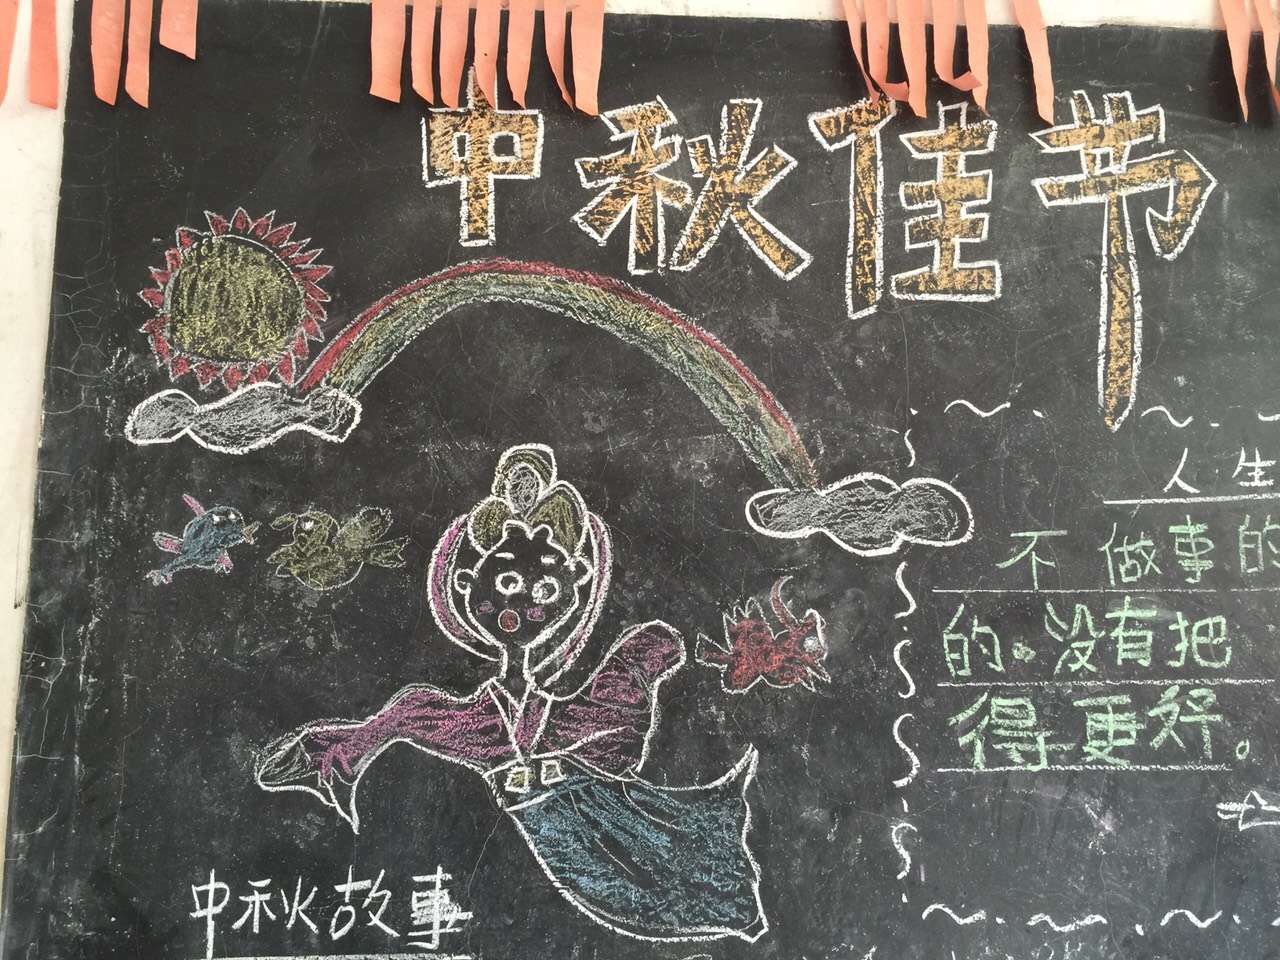 中秋佳节
人生
不做事的
的。没有把
得更好。
中秋故事